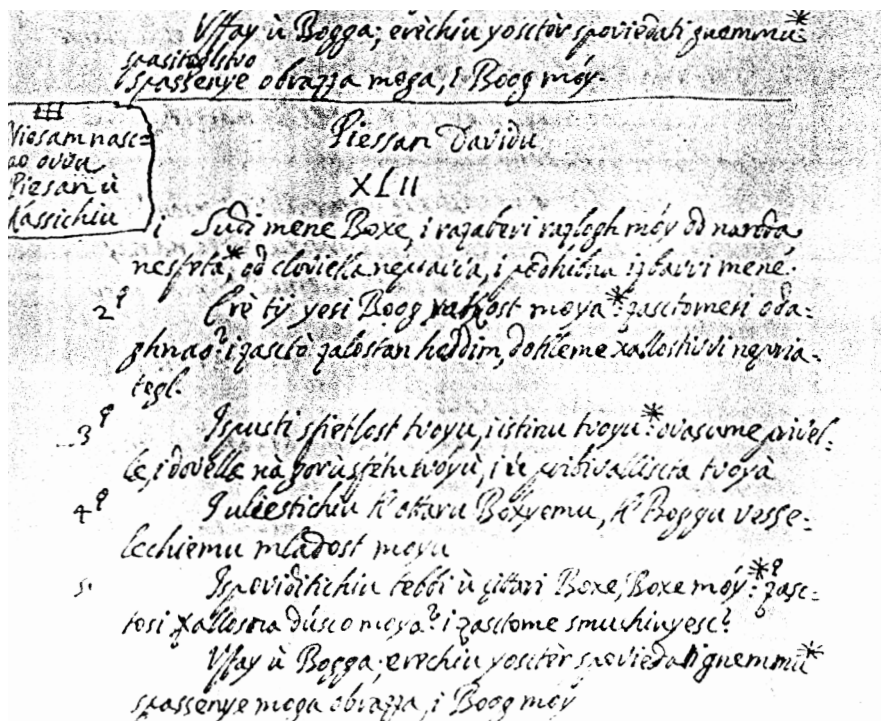 Uffay ù Bogga; erèchiu yosctèr spoviedati gnemmu*:
spasiteglstvo
spassenye obrazza moga, i Boog móy.
Piessan Davidu
XLII
Niesam nasc=
ao ovdu
Piesan ù
Kassichiu
1 Sudi mene Boxe, i razaberi razlogh móy od naroda
nesfeta,* od clovieka nepravva, i podhibna izbavvi mené.
2º Erè tÿ yesi Boog yakost moya*: zasctomesi oda=
ghnao? i zasctò zalostan hoddim, dokleme xallostivi nepria=
tegl.
3º Ispusti sfietlost tvoyu, i istinu tvoyu*: ovasume privel=
le, i dovelle nà gorù sfetu tvoyù, i ù pribivalliscta tvoyà
4º I uliestichiu k' ottaru Boxyemu, k' Boggu vesse=
lechiemu mladost moyu
5. Ispoviditichiu tebbi ù zittari Boxe, Boxe móy*: zasc=
tosi xallosna dúsco moya? i zasctome smuchiuyesc?
Uffay ù Bogga; erechiu yosctèr spoviedati gnemmu*
spassenye moga obrazza, i Boog moy